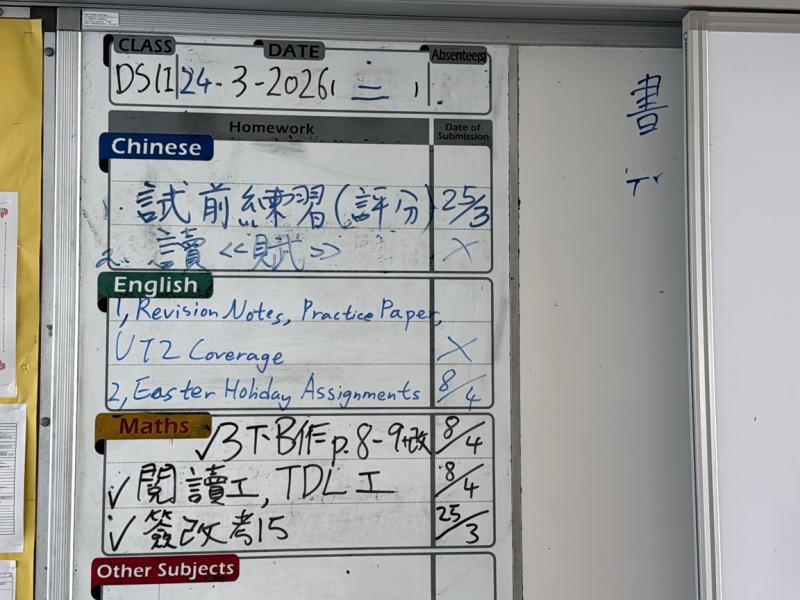 CLASS DATE Absentee(s)
24-3-2026, 二
Homework Date of Submission
Chinese
1. 試前練習(評分) 25/3
2. 讀《賦》 X
English
1, Revision Notes, Practice Paper,
UT2 Coverage X
2, Easter Holiday Assignments 8/4
Maths
√3下B作p.8-9+改 8/4
√閱讀工, TDL工 8/4
√簽改考15 25/3
Other Subjects
書